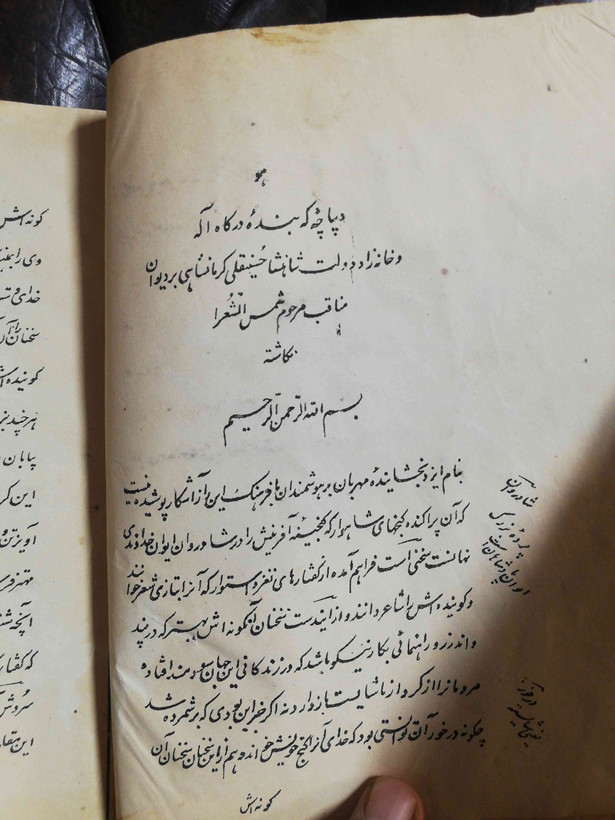 هو
دیباچه که بنده درگاه آله
و خانه زاد دولت شاهنشاه حسینقلی کرمانشاهی بر دیوان
مناقب مرحوم شمس الشعرا
نگاشته
بسم الله الرحمن الرحیم
بنام ایزد بخشاینده مهربان بر هوشمندان با فرهنگ این راز آشکار پوشیده نیست
که آن پراکنده گنجهای شاهوار که گنجینه آفرینش را در شادروان ایوان خداوندی
نهانست سخنی است فراهم آمده از گفتارهای نغز و استوار که آنرا بتازی شعر خوانند
و گوینده اش را شاعر دانند و از ایندست سخنان آنگونه اش بهتر که در پند
و اندرز و راهنمائی بکار نیکو باشد که در زندگانی این جهان سودمند افتاده
مردمانرا از کردار ناشایست باز دارد نه اگر جز این بودی که بر شمرده شد
چگونه در خور آن توانستی بود که خدای آنرا گنج خویش خواند و هم از این سخنان سخنان آن
گونه اش
شادروان
پرده بزرگ
در
ایوان
گونه اش
وی را
خدای و
سخنان را
گوینده اش
هر چند
پایان
این
آویزش و
آنچه
که گفتار
سروش
این